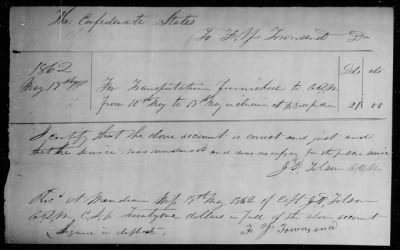 The Confederate States
To F. Y. Townsend Dr
1862 Dols cts
May 17th For Transportation furnished to AQM
from 10th May to 17th May inclusive at $3 per day 21 00
I certify that the above account is correct and just and
that the service was rendered and was necessary for the public service
J. D. Tolson AQM
Recd at Meridian Miss 17th May 1862 of Capt J. D. Tolson
AQM C.S.A. Twenty one dollars in full of the above account
Signed in duplicate F. Y. Townsend